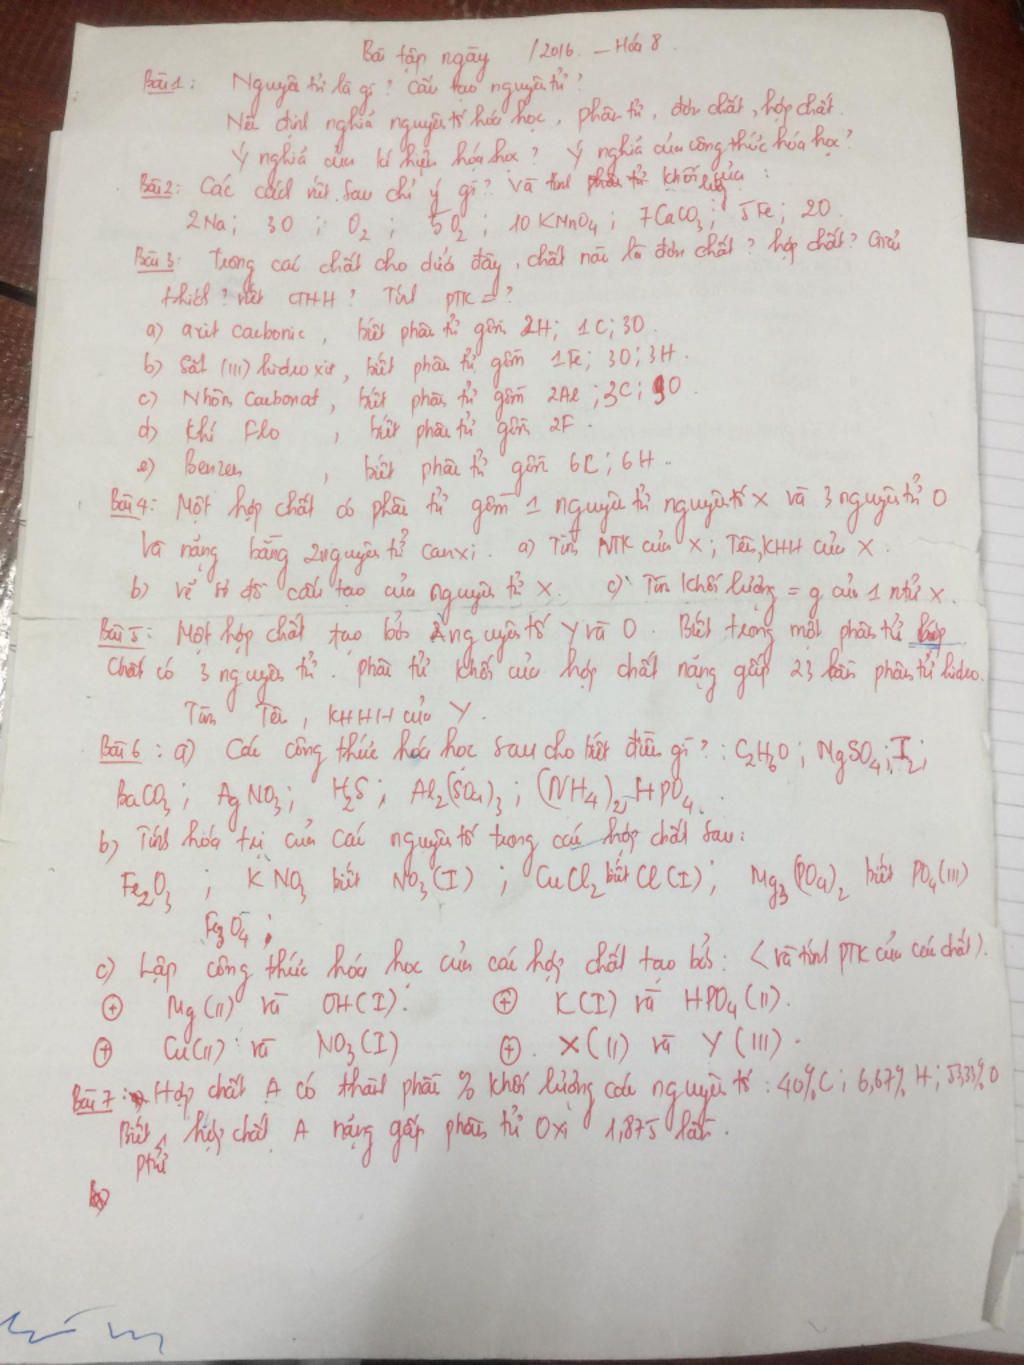 Bài tập ngày /2016. - Hóa 8.
Bài 1: Nguyên tử là gì? Cấu tạo nguyên tử?
Nêu định nghĩa nguyên tố hóa học, phân tử, đơn chất, hợp chất.
Ý nghĩa của kí hiệu hóa học? Ý nghĩa của công thức hóa học?
Bài 2: Các cách viết sau chỉ ý gì? Và tính khối lg của:
2Na; 3O; O₂; 5O₂; 10KMnO₄; 7CaCO₃; 5Fe; 2O.
Bài 3: Trong các chất cho dưới đây, chất nào là đơn chất? hợp chất? Giải
thích? viết CTHH? Tính PTK = ?
a) axit cacbonic, biết phân tử gồm 2H; 1C; 3O.
b) Sắt (III) hidroxit, biết phân tử gồm 1Fe; 3O; 3H.
c) Nhôm Cacbonat, biết phân tử gồm 2Al; 3C; 9O.
d) Khí Flo, biết phân tử gồm 2F.
e) Benzen, biết phân tử gồm 6C; 6H.
Bài 4: Một hợp chất có phân tử gồm 1 nguyên tử nguyên tố X và 3 nguyên tử O
và nặng bằng 2 nguyên tử canxi. a) Tính NTK của X; Tên, KHH của X.
b) vẽ sơ đồ cấu tạo của nguyên tử X. c) Tính khối lượng = g của 1 ntử X.
Bài 5: Một hợp chất tạo bởi nguyên tố Y và O. Biết trong một phân tử hợp
chất có 3 nguyên tử. phân tử khối của hợp chất nặng gấp 23 lần phân tử hidro.
Tìm Tên, KHHH của Y.
Bài 6: a) Các công thức hóa học sau cho biết điều gì?: C₂H₆O; MgSO₄; I₂;
BaCO₃; AgNO₃; H₂S; Al₂(SO₄)₃; (NH₄)₂HPO₄.
b) Tính hóa trị của các nguyên tố trong các hợp chất sau:
Fe₂O₃; KNO₃ biết NO₃(I); CuCl₂ biết Cl(I); Mg₃(PO₄)₂ biết PO₄(III)
Fe₃O₄;
c) Lập công thức hóa học của các hợp chất tạo bởi: (và tính PTK của các chất).
⊕ Mg(II) và OH(I). ⊕ K(I) và HPO₄(II).
⊕ Cu(II) và NO₃(I) ⊕. X(II) và Y(III).
Bài 7: Hợp chất A có thành phần % khối lượng các nguyên tố: 40%C; 6,67%H; 53,33%O
Biết ptử hợp chất A nặng gấp phân tử Oxi 1,875 lần.